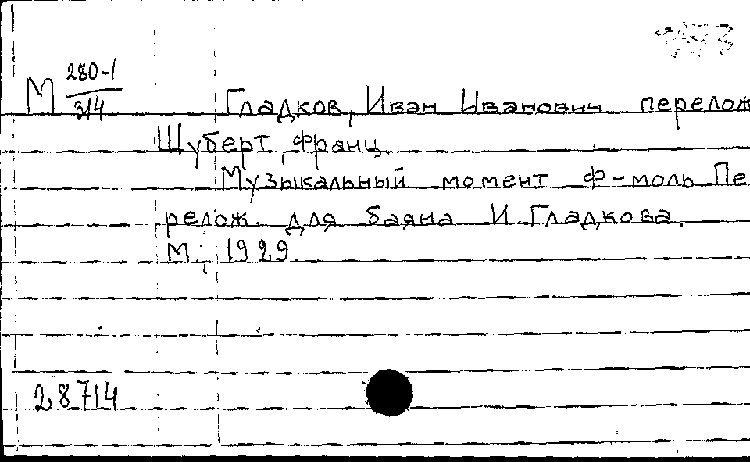 М 280-1
314
Гладков, Иван Иванович перелож
Шуберт, Франц.
Музыкальный момент ф-моль Пе
релож. для баяна И. Гладкова.
М., 1929.
28714